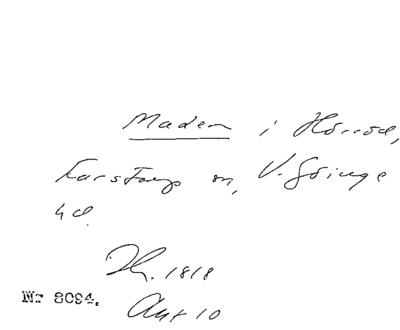 Maden i Hörröd,
Farstorp sn, V. Göinge
hd.
Th. 1818
Nr 8094.
Ant 10